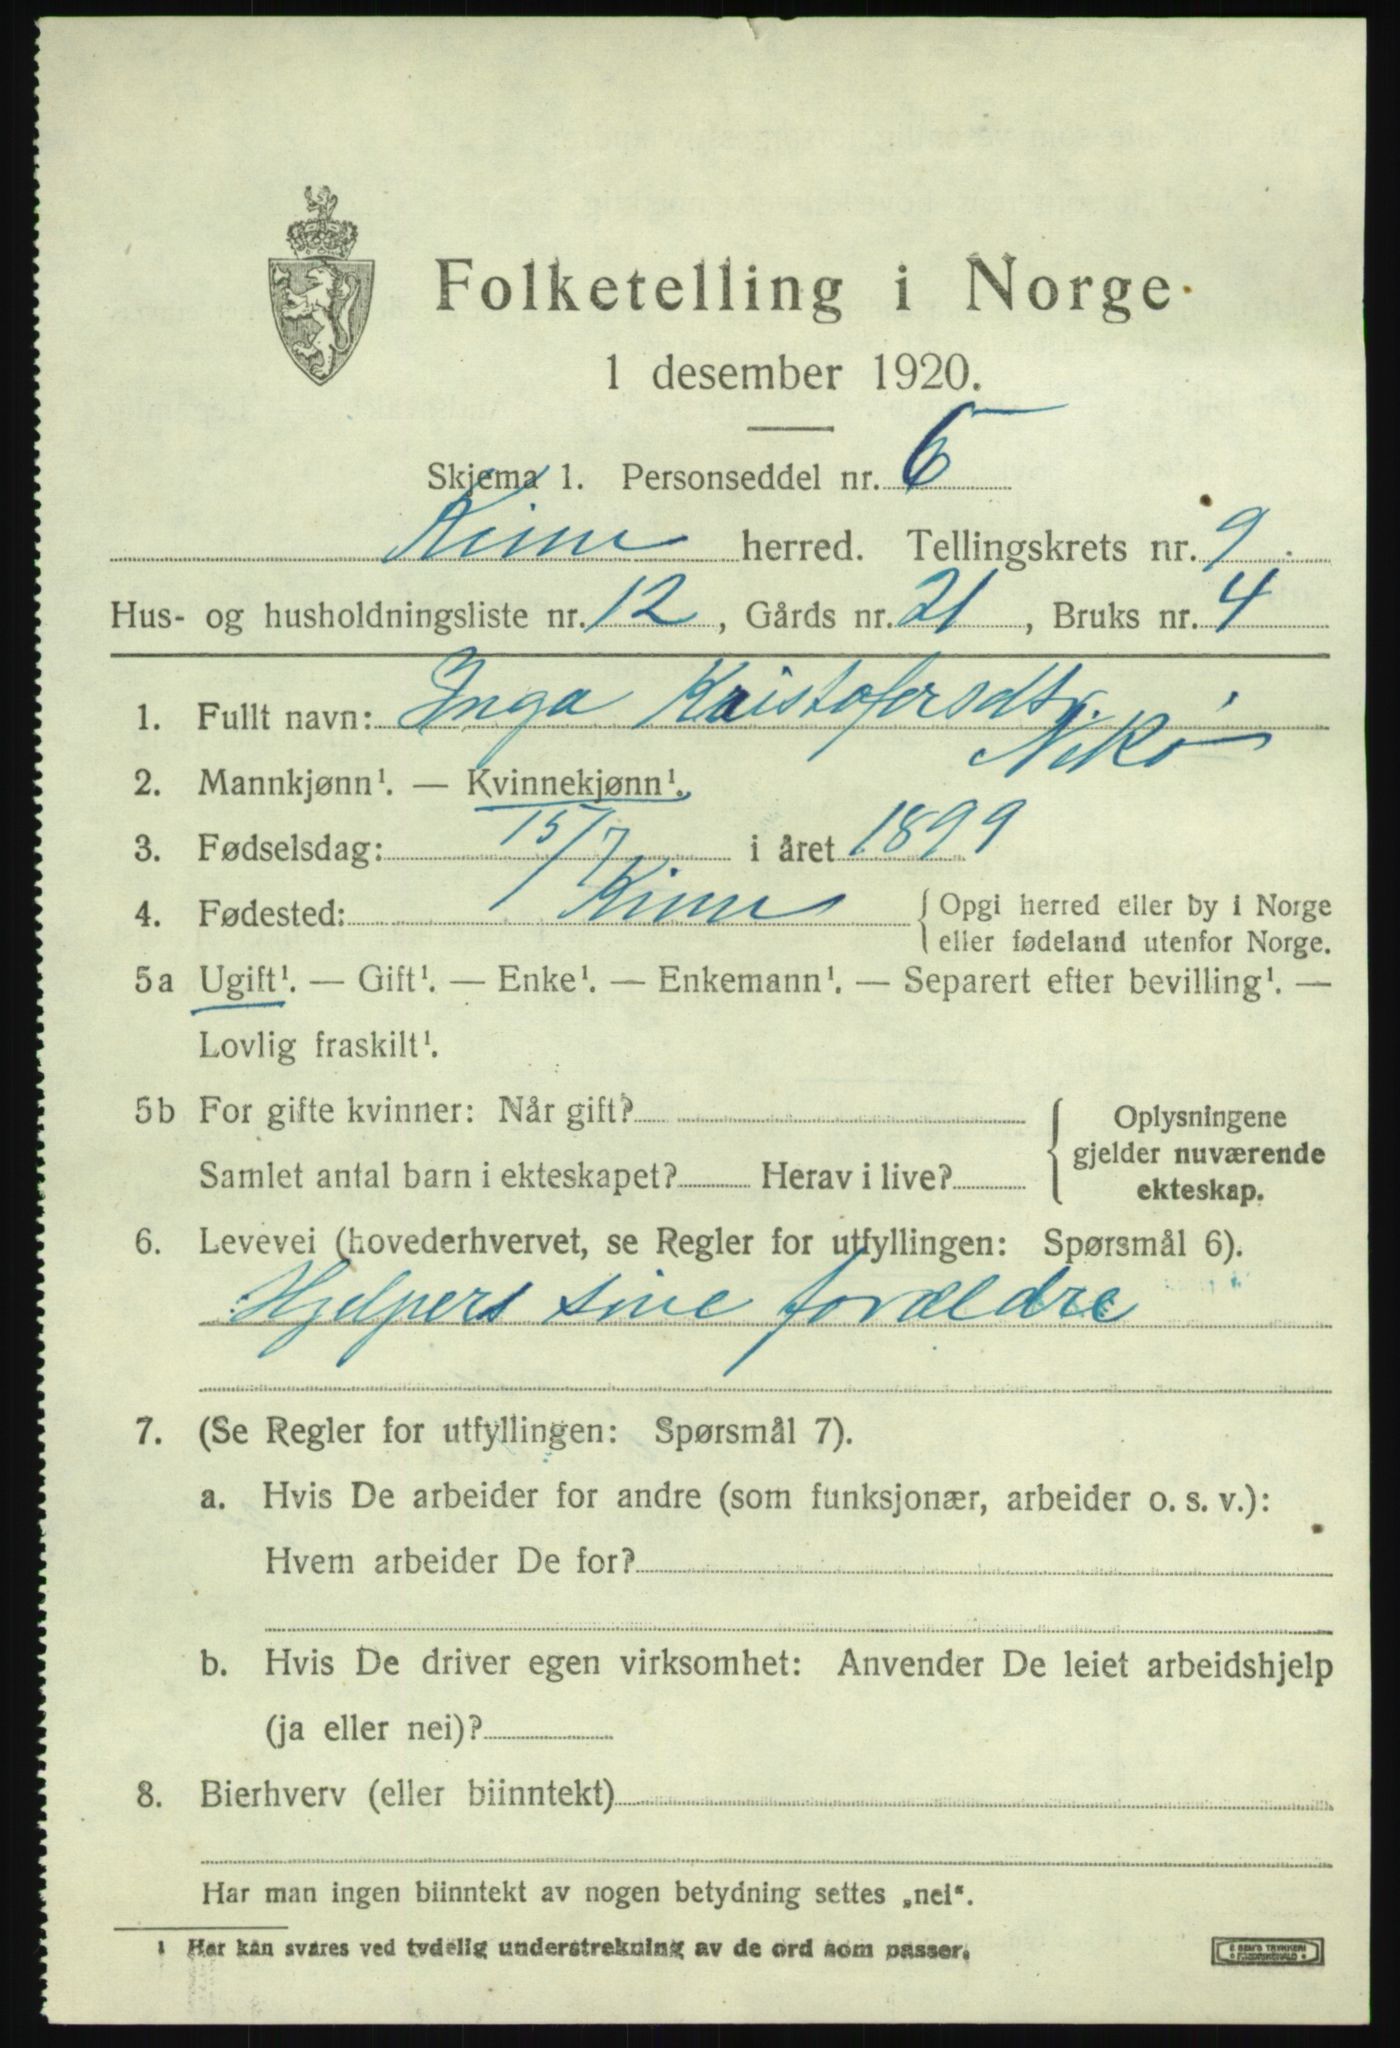 Folketelling i Norge
1 desember 1920.
Skjema 1. Personseddel nr. 6
Kinn herred. Tellingskrets nr. 9
Hus- og husholdningsliste nr. 12, Gårds nr. 21, Bruks nr. 4
1. Fullt navn: Inga Kristofersdtr.
Nekø
2. Mannkjønn¹. — Kvinnekjønn¹.
3. Fødselsdag: 15/7 i året 1899
4. Fødested: Kinn { Opgi herred eller by i Norge
eller fødeland utenfor Norge.
5a Ugift¹. — Gift¹. — Enke¹. — Enkemann¹. — Separert efter bevilling¹. —
Lovlig fraskilt¹.
5b For gifte kvinner: Når gift?
Samlet antal barn i ekteskapet? Herav i live?
{ Oplysningene
gjelder nuværende
ekteskap.
6. Levevei (hovederhvervet, se Regler for utfyllingen: Spørsmål 6).
Hjelpers sine forældre
7. (Se Regler for utfyllingen: Spørsmål 7).
a. Hvis De arbeider for andre (som funksjonær, arbeider o. s. v.):
Hvem arbeider De for?
b. Hvis De driver egen virksomhet: Anvender De leiet arbeidshjelp
(ja eller nei)?
8. Bierhverv (eller biinntekt)
Har man ingen biinntekt av nogen betydning settes „nei“.
1 Her kan svares ved tydelig understrekning av de ord som passer.